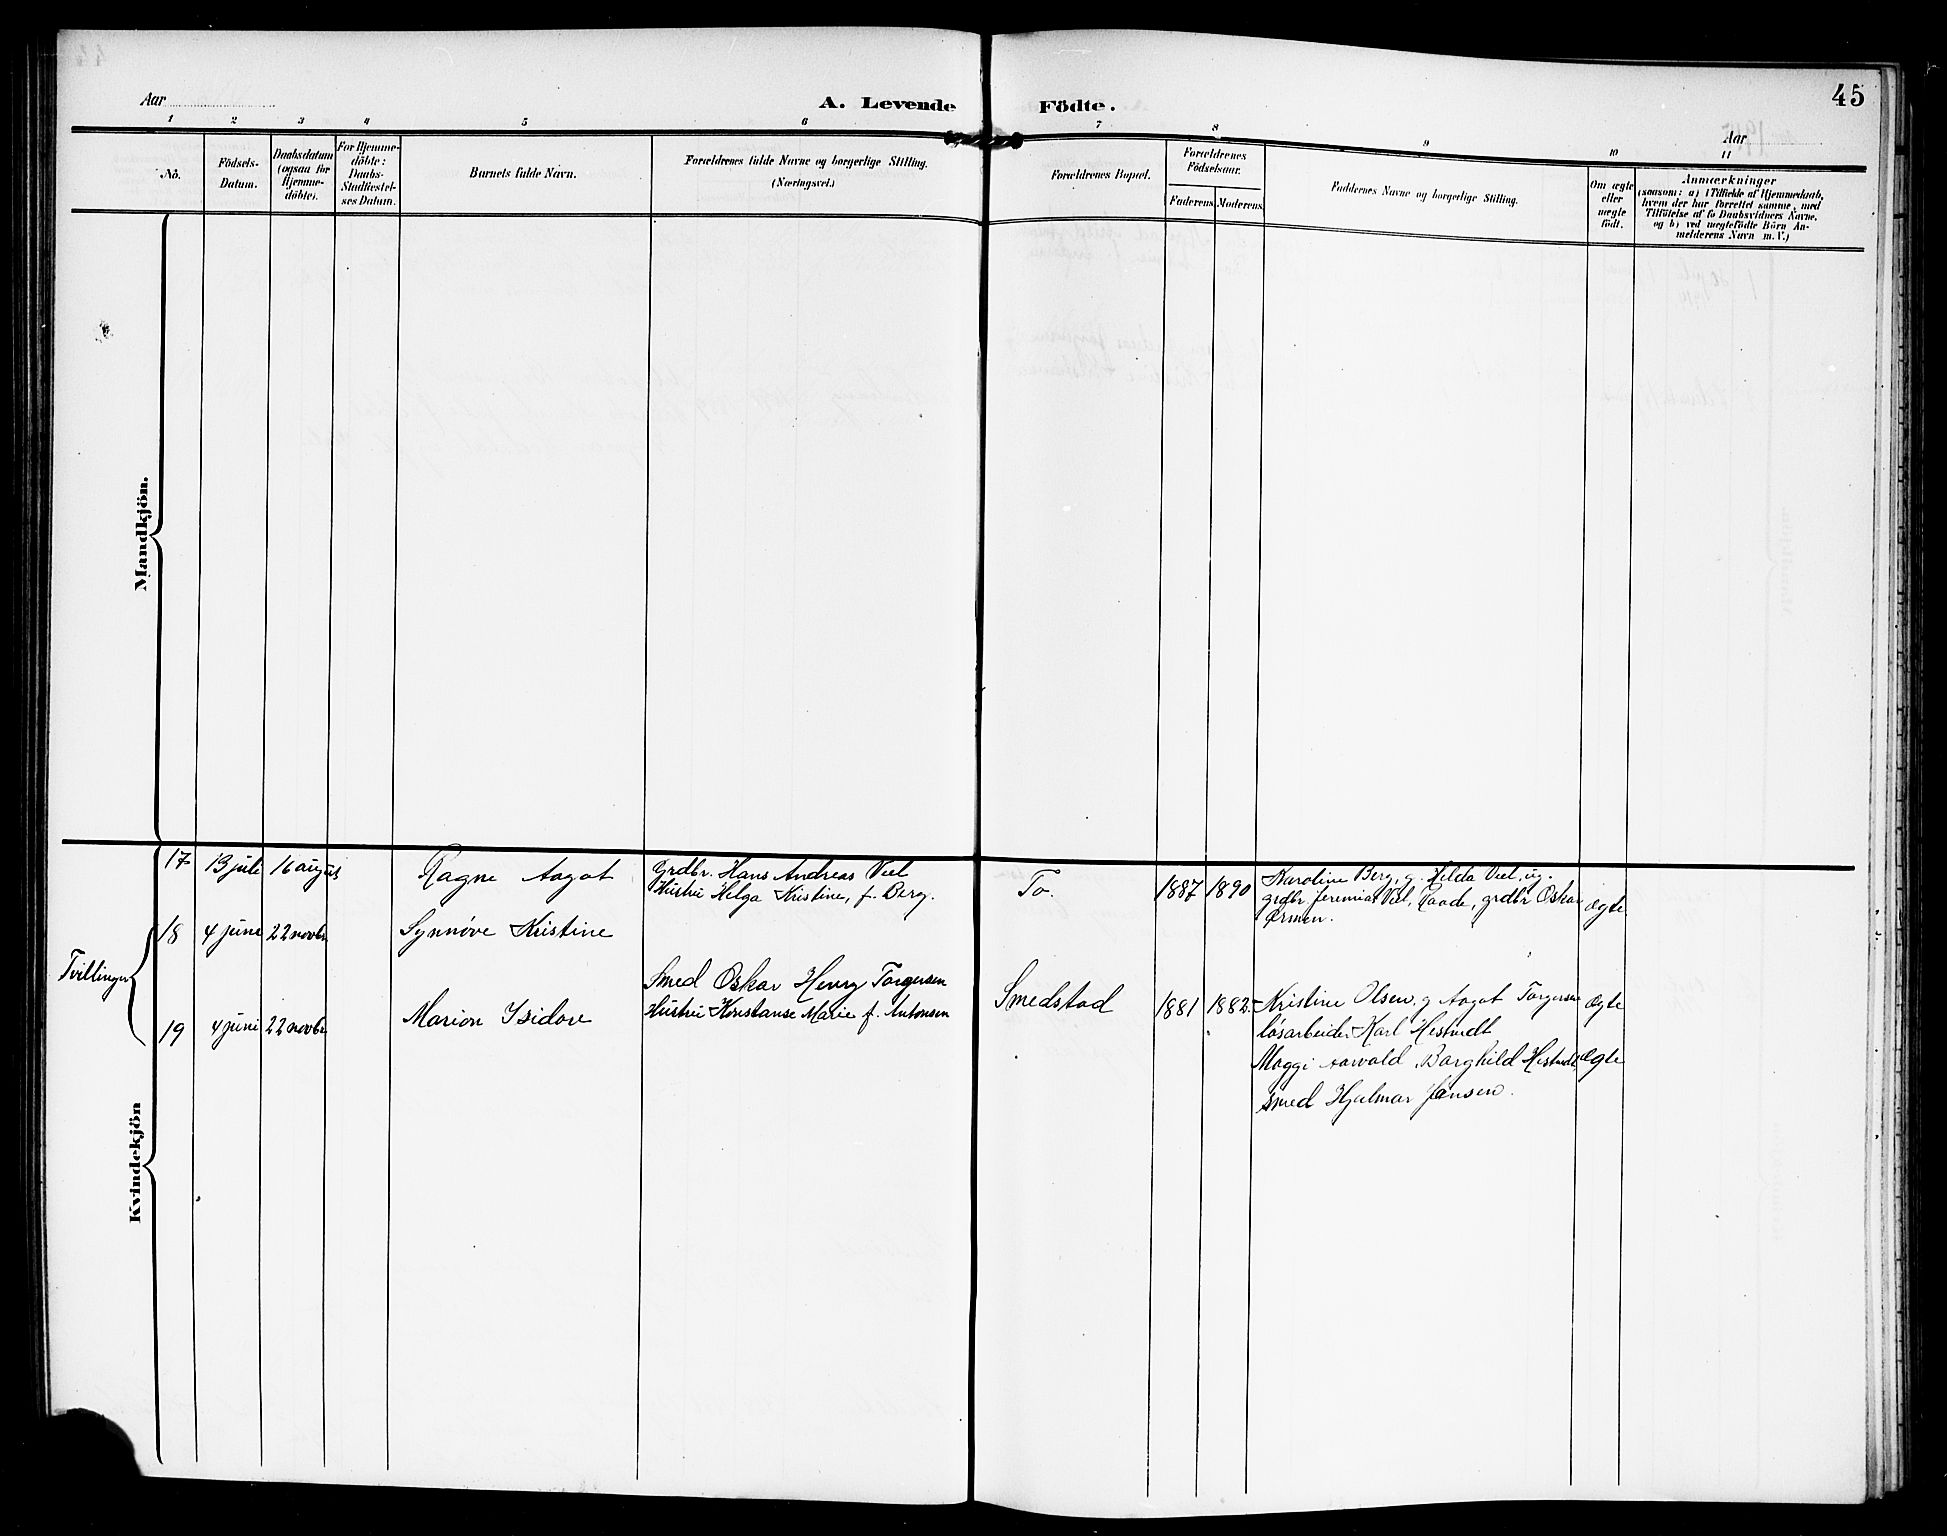 45
Aar
A. Levende Födte.
Aar
1 2 3 4 5 6 7 8 9 10 11
No.
Födsels-
Datum.
Daabsdatum
(ogsaa for
Hjemme-
döbte).
For Hjemme-
döbte:
Daabs-
Stadfæstel-
ses Datum.
Barnets fulde Navn.
Forældrenes fulde Navne og borgerlige Stilling.
(Næringsvei.)
Forældrenes Bopæl.
Forældrenes
Födselsaar.
Faderens Moderens
Faddernes Navne og borgerlige Stilling.
Om ægte
eller
uægte
født.
Anmærkninger
(saasom: a) i Tilfælde af Hjemmedaab,
hvem der har forrettet samme, med
Tilföielse af to Daabsvidners Navne,
og b) ved uægtefödte Börn An-
melderens Navn m.V.)
Mandkjön.
Kvindekjön
17 13 juli 16 august Ragne Aagot
Grdbr. Hans Andreas Viel
Hustru Helga Kristine, f. Berg.
To. 1887 1890
Karoline Berg, g. Hilda Viel, ug.
grdbr Jeremias Viel, Raade, grdbr Oskar
Ørmen.
Ægte
Tvillinger
18 4 juni 22 novbr Synnøve Kristine
Smed Oskar Henry Torgersen
Hustru Konstanse Marie f. Antonsen
19 4 juni 22 novbr Marion Isidore
Smedstad 1881 1882
Kristine Olsen, g Aagot Torgersen
løsarbeider Karl Hestvedt
Ægte
Maggi Aarvold, Borghild Hestvedt,
smed Hjalmar Jansen.
Ægte